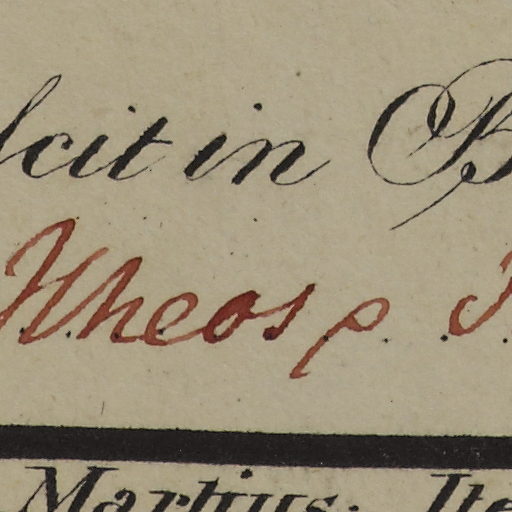 cit in B
Wheos p.
Martius. Ite